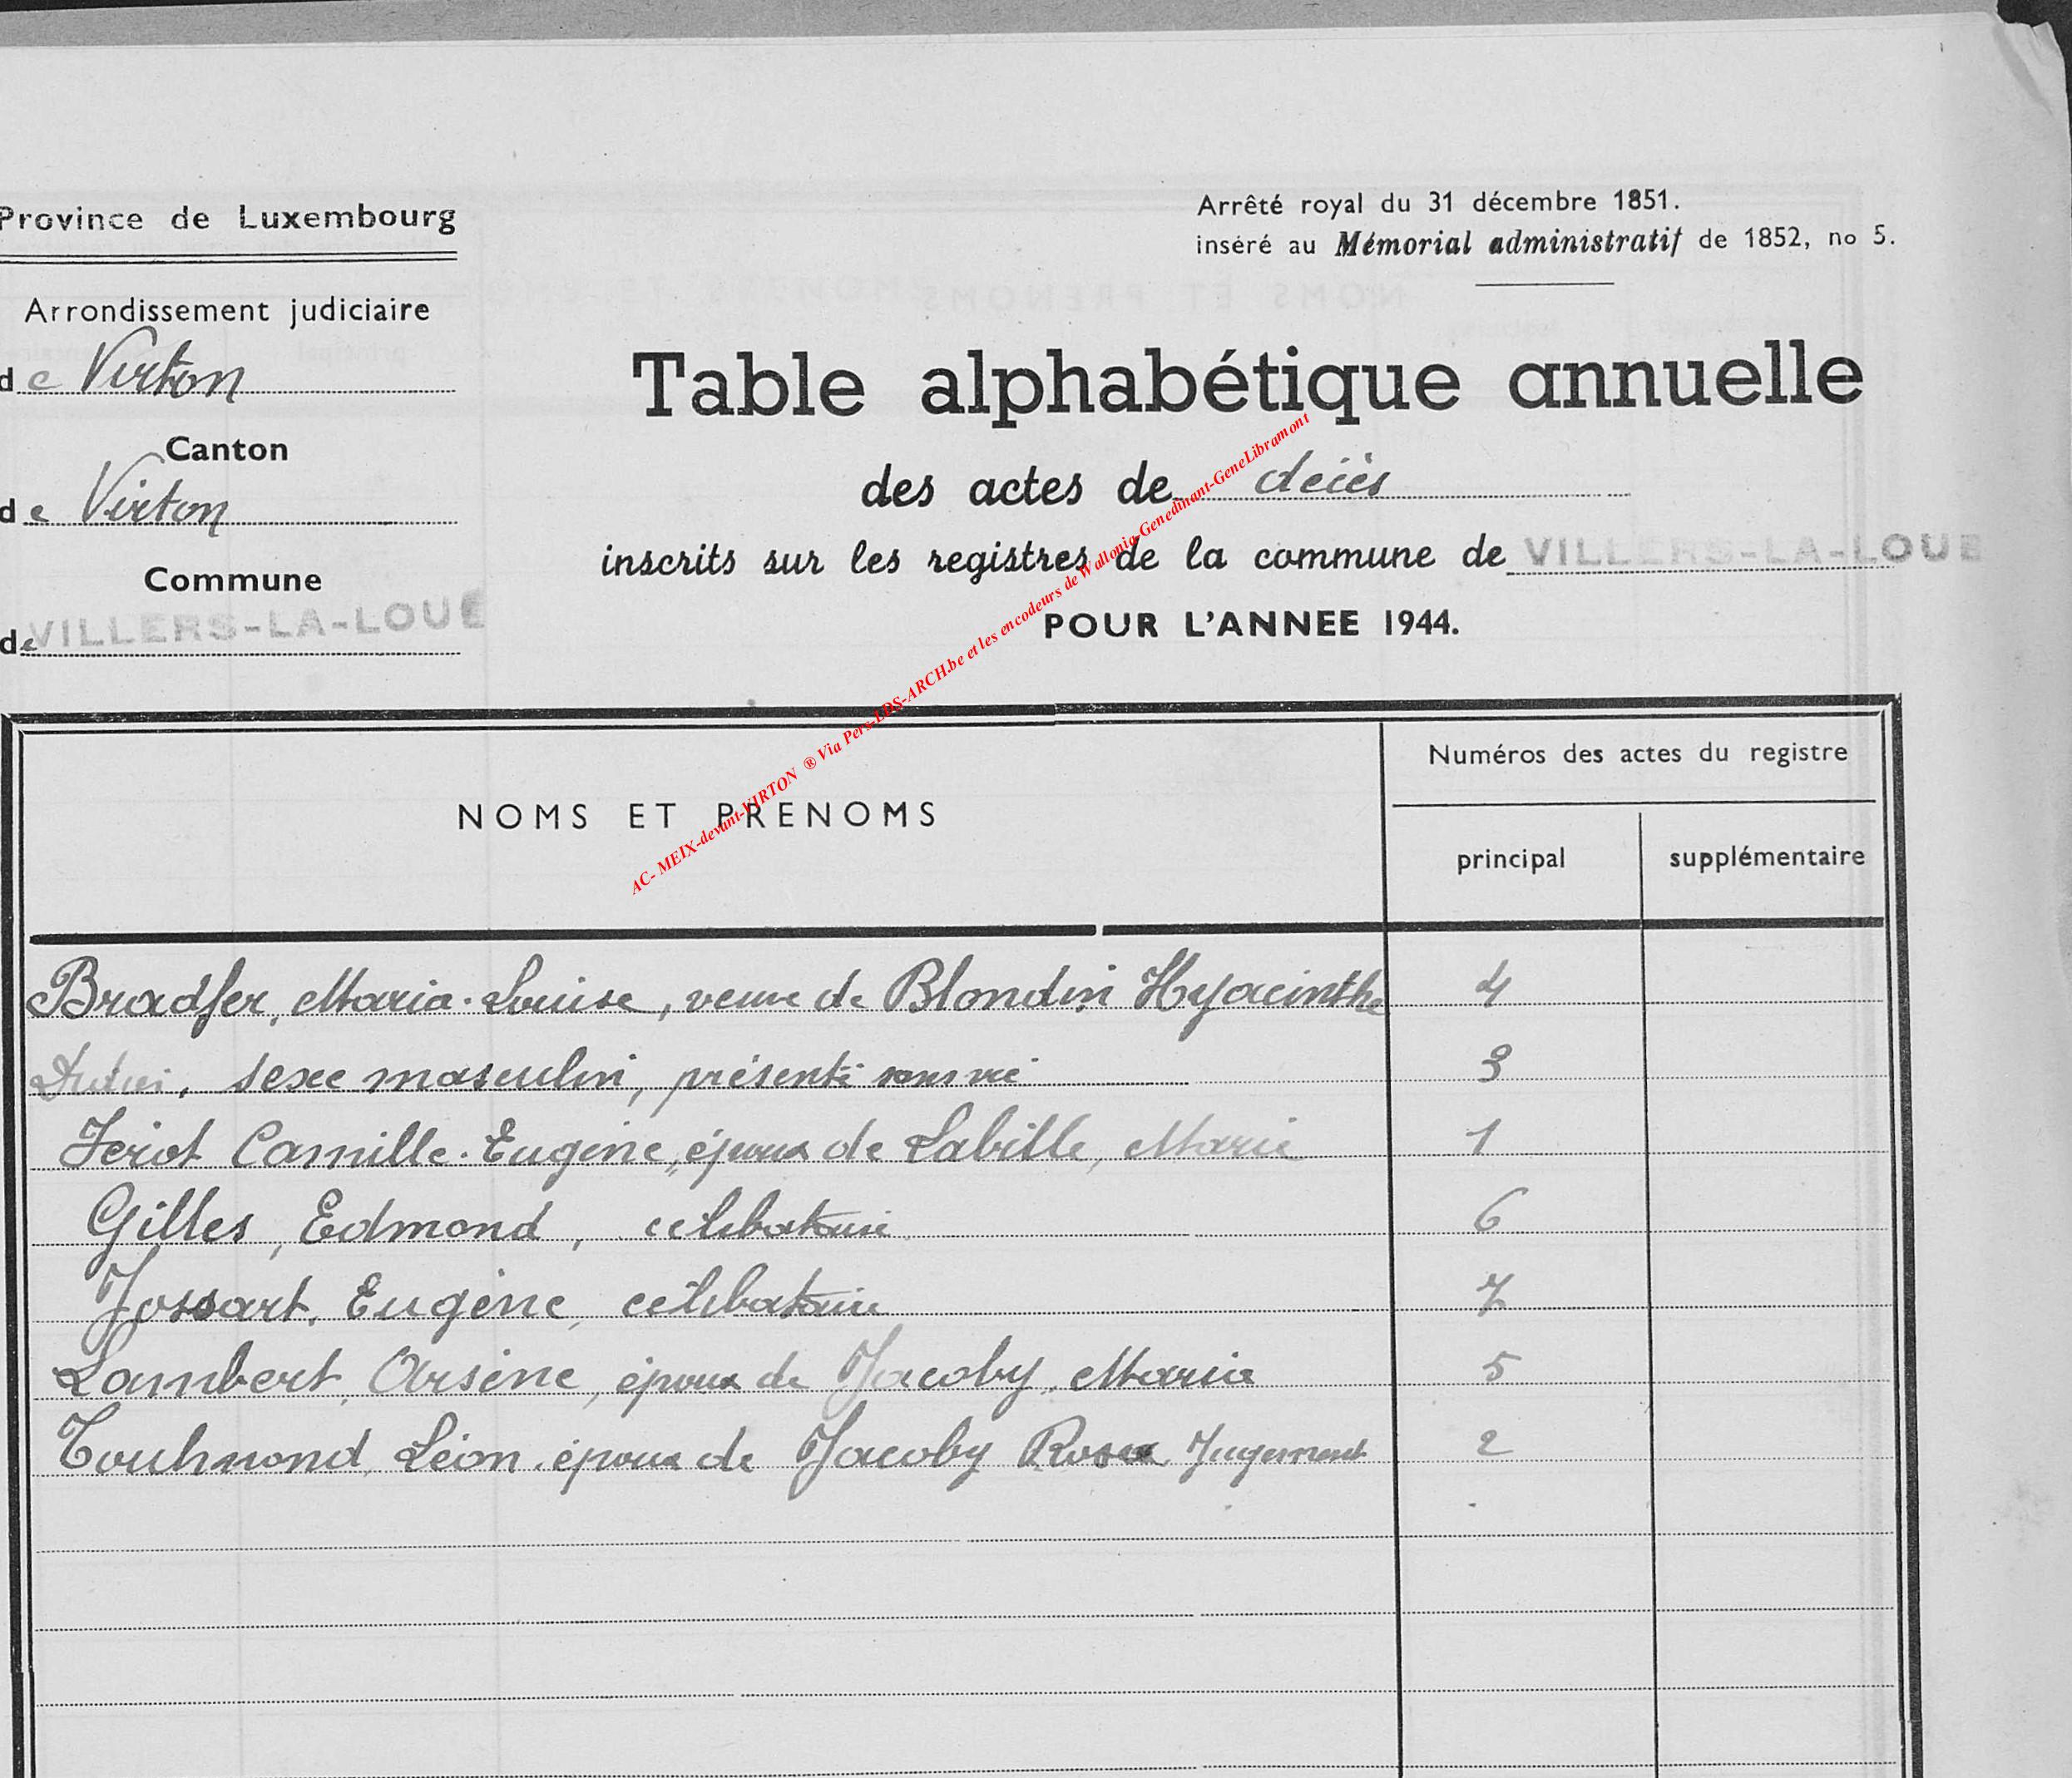 Province de Luxembourg
Arrondissement judiciaire
de Virton
Canton
de Virton
Commune
de VILLERS-LA-LOUE
Arrêté royal du 31 décembre 1851.
inséré au Mémorial administratif de 1852, no 5.
Table alphabétique annuelle
des actes de décès
inscrits sur les registres de la commune de VILLERS-LA-LOUE
POUR L'ANNEE 1944.
AC- MEIX-devant-VIRTON ® Via Pers-LDS-ARCH.be et les encodeurs de Wallonia-Genedinant-GeneLibramont
NOMS ET PRENOMS
Numéros des actes du registre
principal supplémentaire
Bradfer, Maria-Louise, veuve de Blondin Hyacinthe 4
, sexe masculin, présenté sans vie 3
Feriot Camille-Eugène, époux de Labille, Marie 1
Gilles, Edmond, célibataire 6
Jossart, Eugène, célibataire 7
Lambert, Arsène, époux de Jacoby, Maria 5
Léon, époux de Jacoby Rosa Jugement 2